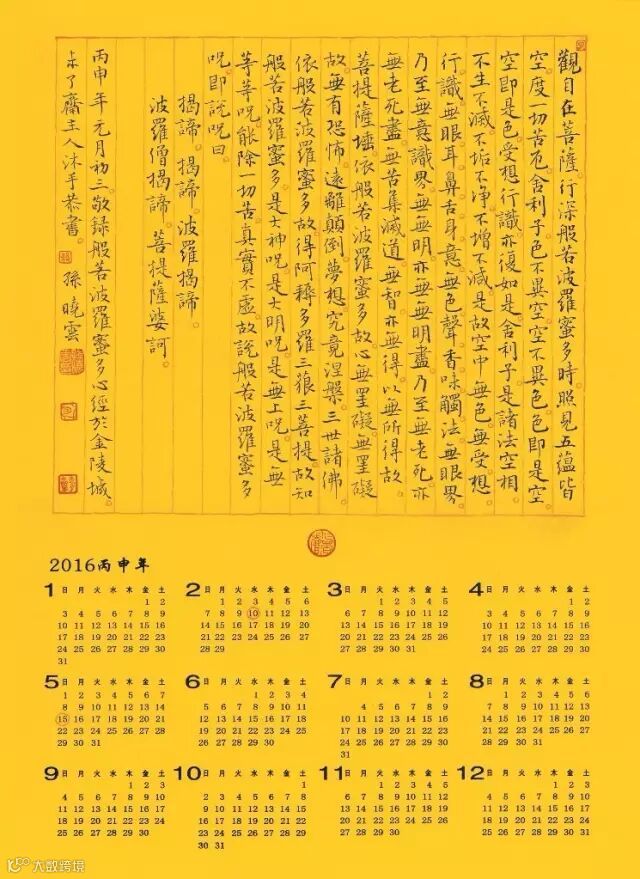 觀自在菩薩。行深般若波羅蜜多時。照見五蘊皆
空。度一切苦厄。舍利子。色不異空。空不異色。色即是空。
空即是色。受想行識。亦復如是。舍利子。是諸法空相。
不生不滅。不垢不净。不增不減。是故空中無色。無受想
行識。無眼耳鼻舌身意。無色聲香味觸法。無眼界。
乃至無意識界。無無明。亦無無明盡。乃至無老死。亦
無老死盡。無苦集滅道。無知亦無得。以無所得故。
菩提薩埵。依般若波羅蜜多故。心無罣礙。無罣礙
故。無有恐怖。遠離顛倒夢想。究竟涅槃。三世諸佛。
依般若波羅蜜多故。得阿耨多羅三藐三菩提。故知
般若波羅蜜多。是大神呪。是大明呪。是無上呪。是無
等等呪。能除一切苦。真實不虛。故說般若波羅蜜多
呪。即說呪曰。
揭諦。揭諦。波羅揭諦。
波羅僧揭諦。菩提薩婆訶。
丙申年元月初三敬録般若波羅蜜多心經於金陵城
未了齋主人沐手恭書。孫曉雲
2016丙申年
1 日 月 火 水 木 金 土
1 2
3 4 5 6 7 8 9
10 11 12 13 14 15 16
17 18 19 20 21 22 23
24 25 26 27 28 29 30
31
2 日 月 火 水 木 金 土
1 2 3 4 5 6
7 8 9 10 11 12 13
14 15 16 17 18 19 20
21 22 23 24 25 26 27
28 29
3 日 月 火 水 木 金 土
1 2 3 4 5
6 7 8 9 10 11 12
13 14 15 16 17 18 19
20 21 22 23 24 25 26
27 28 29 30 31
4 日 月 火 水 木 金 土
1 2
3 4 5 6 7 8 9
10 11 12 13 14 15 16
17 18 19 20 21 22 23
24 25 26 27 28 29 30
5 日 月 火 水 木 金 土
1 2 3 4 5 6 7
8 9 10 11 12 13 14
15 16 17 18 19 20 21
22 23 24 25 26 27 28
29 30 31
6 日 月 火 水 木 金 土
1 2 3 4
5 6 7 8 9 10 11
12 13 14 15 16 17 18
19 20 21 22 23 24 25
26 27 28 29 30
7 日 月 火 水 木 金 土
1 2
3 4 5 6 7 8 9
10 11 12 13 14 15 16
17 18 19 20 21 22 23
24 25 26 27 28 29 30
31
8 日 月 火 水 木 金 土
1 2 3 4 5 6
7 8 9 10 11 12 13
14 15 16 17 18 19 20
21 22 23 24 25 26 27
28 29 30 31
9 日 月 火 水 木 金 土
1 2 3
4 5 6 7 8 9 10
11 12 13 14 15 16 17
18 19 20 21 22 23 24
25 26 27 28 29 30
10 日 月 火 水 木 金 土
1
2 3 4 5 6 7 8
9 10 11 12 13 14 15
16 17 18 19 20 21 22
23 24 25 26 27 28 29
30 31
11 日 月 火 水 木 金 土
1 2 3 4 5
6 7 8 9 10 11 12
13 14 15 16 17 18 19
20 21 22 23 24 25 26
27 28 29 30
12 日 月 火 水 木 金 土
1 2 3
4 5 6 7 8 9 10
11 12 13 14 15 16 17
18 19 20 21 22 23 24
25 26 27 28 29 30 31
大数跨境